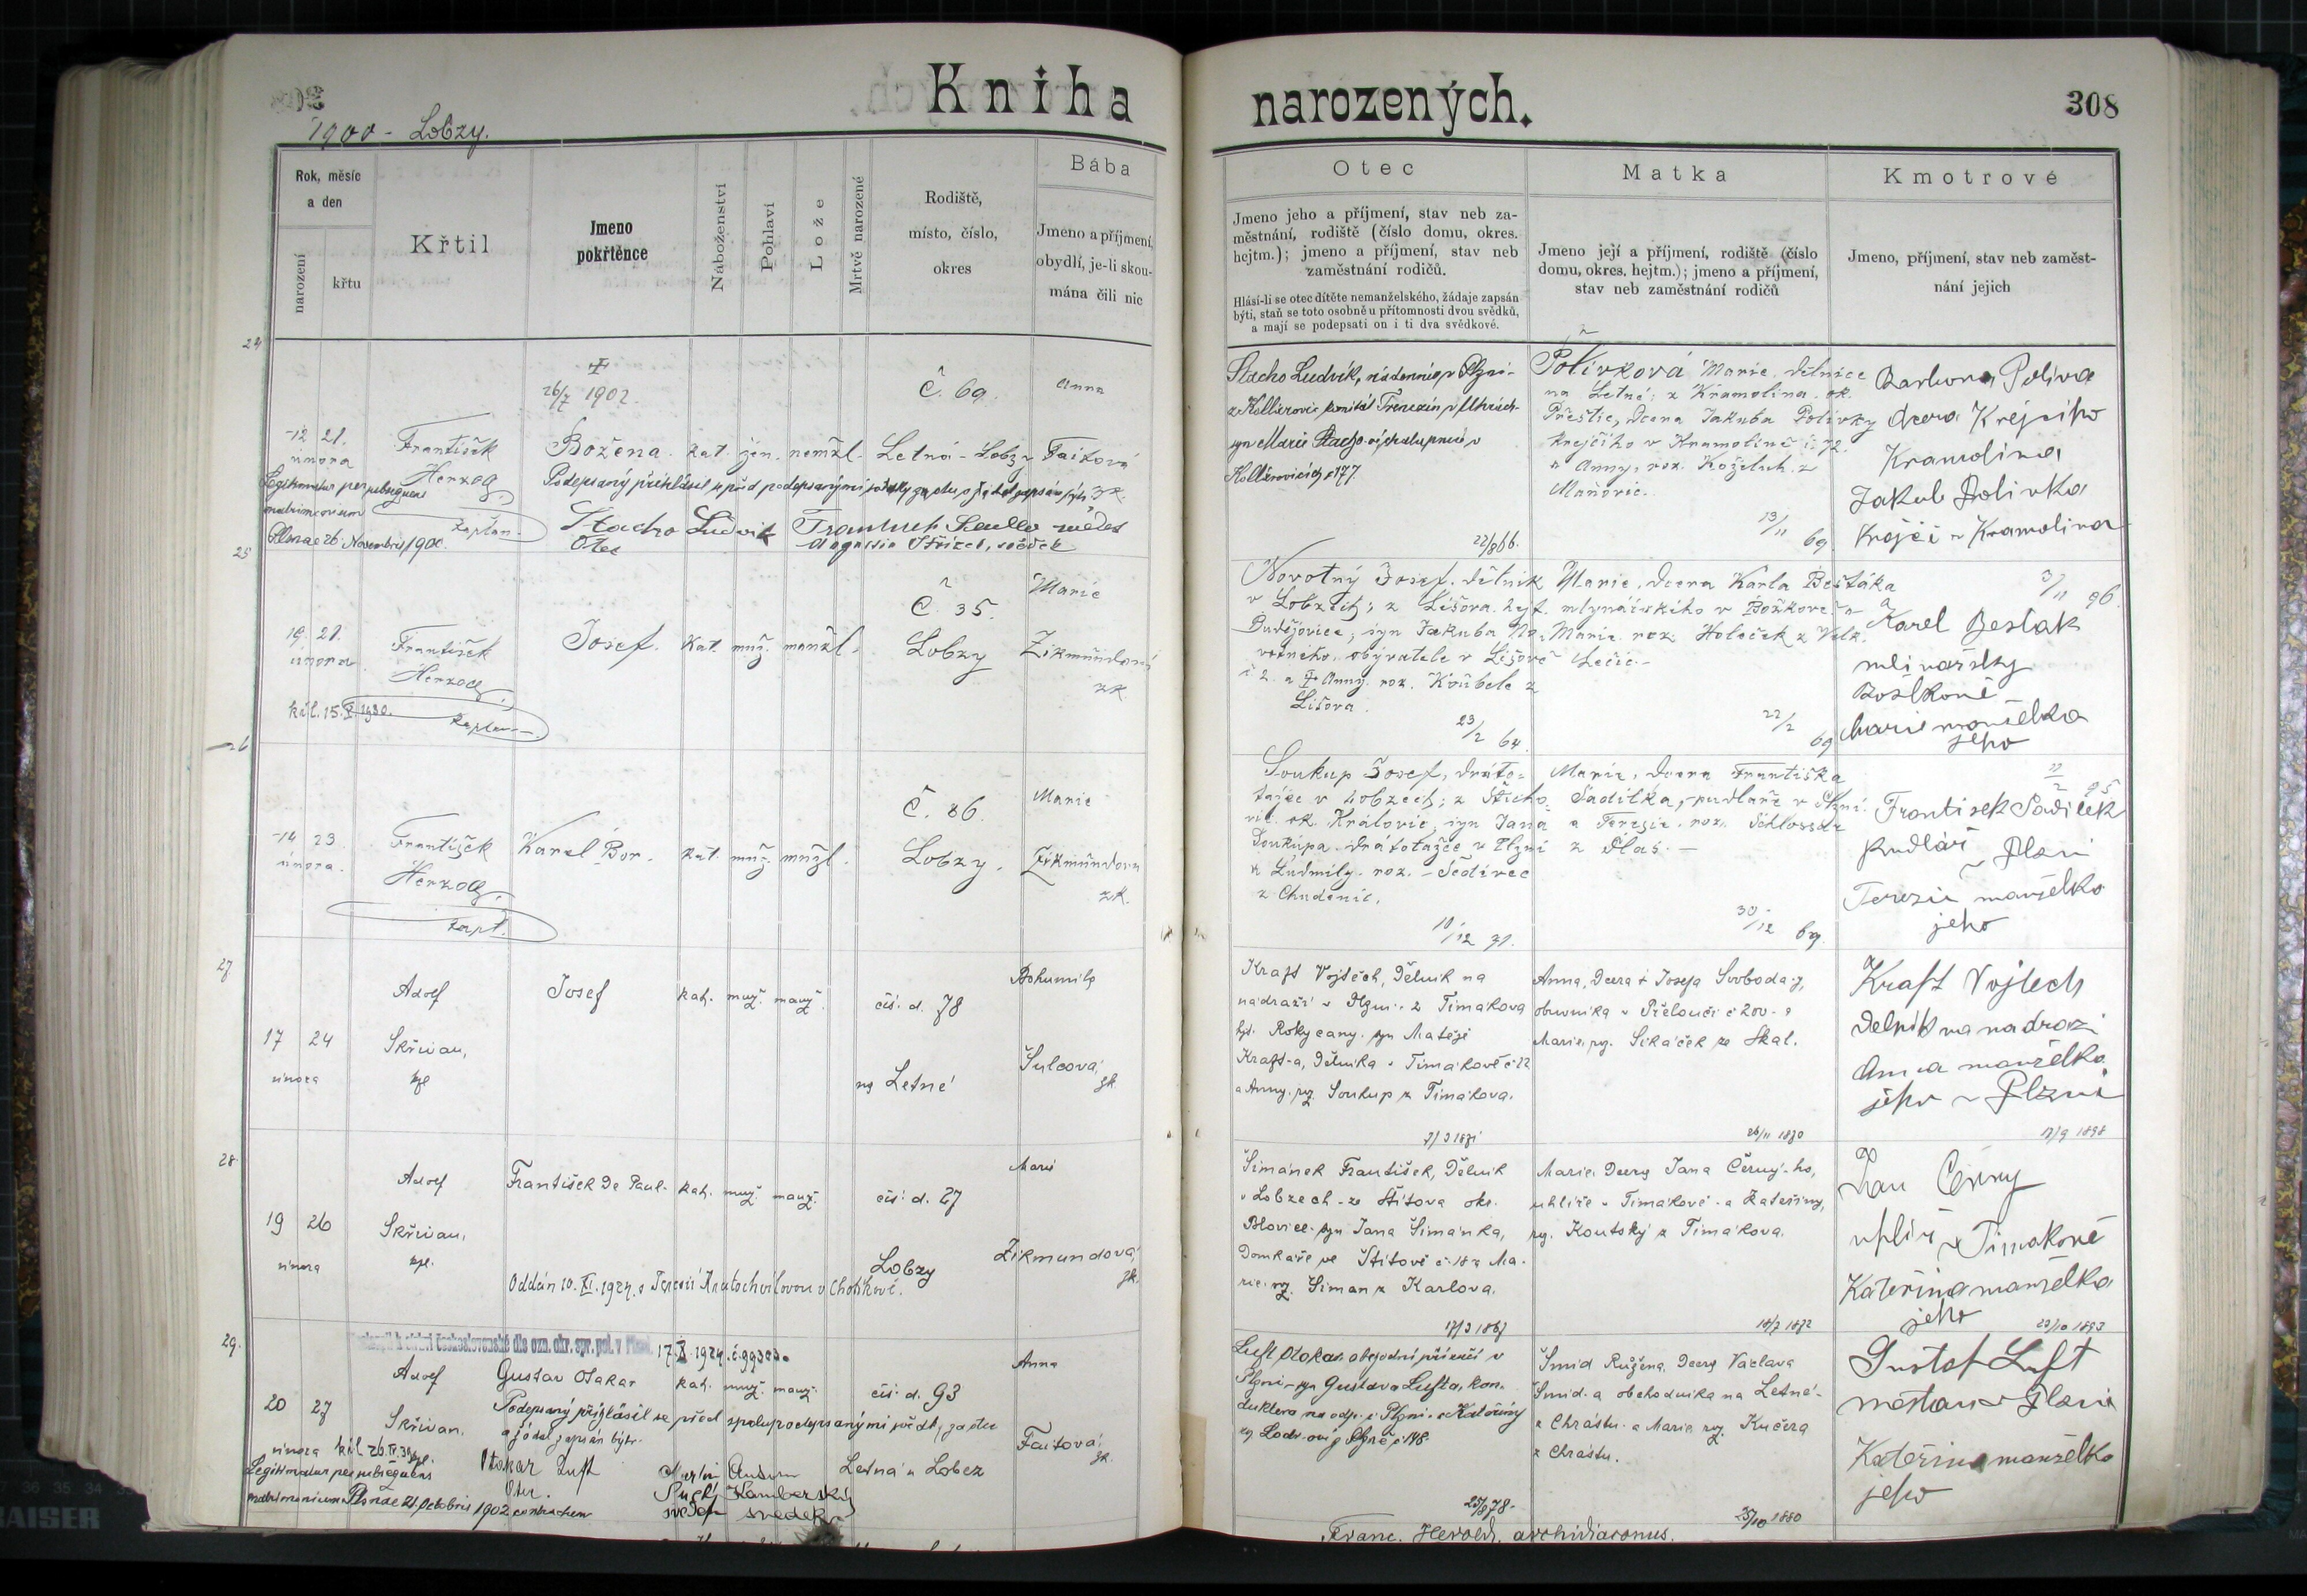 Kniha narozených.
308
1900 - Lobzy.
Rok, měsíc
a den
narození
křtu
Křtil
Jmeno
pokřtěnce
Náboženství
Pohlaví
Lože
Mrtvě narozené
Rodiště,
místo, číslo,
okres
Bába
Jmeno a příjmení,
obydlí, je-li skou-
mána čili nic
Otec
Jmeno jeho a příjmení, stav neb za-
městnání, rodiště (číslo domu, okres.
hejtm.); jmeno a příjmení, stav neb
zaměstnání rodičů.
Hlásí-li se otec dítěte nemanželského, žádaje zapsán
býti, staň se toto osobně u přítomnosti dvou svědků,
a mají se podepsati on i ti dva svědkové.
Matka
Jmeno její a příjmení, rodiště (číslo
domu, okres. hejtm.); jmeno a příjmení,
stav neb zaměstnání rodičů
Kmotrové
Jmeno, příjmení, stav neb zaměst-
nání jejich
24
26/7 1902.
Č. 69.
Anna
12 21.
února
František
Herzog
kaplan.
Božena. kat. žen. nemžl. Letná-Lobzy
Stacho Ludvík
Otec
26. Novembris 1900.
Stacho Ludvík,
syn Marie
22/8 66.
Polívková Marie, dělnice
na Letné; z Kramolína ok.
Přeštic, dcera Jakuba Polívky
krejčího v Kramolíně č. 72.
a Anny, roz. Koželuh z
13/11 69.
Barbora Poliva
dcera Krejčího
Kramolina
Jakub Polivka
Krejčí v Kramolína
25
Č. 35.
Marie
19. 21.
února
František
Herzog
kaplan
Josef. kat. muž. manžl. Lobzy Zikmundová
zk.
bil. 15. X. 1930.
Novotný Josef, dělník
v Lobzích; z Lišova hejt.
Budějovice; syn Jakuba No-
votného, obyvatele v Lišově
č. 2 a Anny roz.
Lišova.
23/2 64.
Marie, dcera Karla Bešťáka
mlynářského v Božkově a
Marie roz. Holeček z Velk.
22/2 69
3/11 96.
Karel Bestak
mlinařsky
Marie manželka
jeho
26
Č. 86.
Marie
14 23.
února.
František
Herzog
kapl.
Karel Bor. kat. muž. mnžl. Lobzy. Zikmundova
zk.
Soukup Josef, dráto-
tažec v Lobzích; z
ok. Kralovic, syn Jana
Soukupa drátotažče v Plzni
a Ludmily roz.
z Chudenic.
10/12 71.
Marie, dcera Františka
Sadílka, pudlaře v Plzni
a Terezie roz. Schlosser
z Plas.
30/12 69.
František Sadilek
Pudlář v Plzni
Terezie manželka
jeho
27
17 24
února
Adolf
Skřivan,
kpl
Josef kat. muž. manž. čís. d. 78
na Letné
Bohumila
Šulcová,
zk.
Kraft Vojtěch, Dělník na
nádraží v Plzni z Timákova
hjt. Rokycany. syn Matěje
Kraft-a, Dělníka v Timákově č. 22
a Anny roz. Soukup z Timákova.
7/3 1871
Anna, Dcera + Josefa Svobody,
obuvníka v Přelouči č 200 a
Marie, roz. Sikáček ze Skal.
26/11 1870
Kraft Vojtech
Delnik na nadrazi
Anna manželka
jeho v Plzni
17/9 1898
28
19 26
února
Adolf
Skřivan,
kpl.
František De Paul. kat. muž. manž. čís. d. 27
Lobzy
Marie
Zikmundová,
zk.
Oddán 10. XI. 1924. s Terezií Kratochvílovou v Chotíkově.
Šimánek František, Dělník
v Lobzech - ze Štítova okr.
Blovice. syn Jana Šimánka,
Domkáře ve Štítově č. 18 a Ma-
rie roz. Šiman z Karlova.
17/3 1867
Marie, Dcera Jana Černý-ho,
uhlíře v Timákově a Kateřiny,
roz. Koutský z Timákova.
18/7 1872
Jan Černy
uhlíř v Timakově
Kateřina manželka
jeho
23/10 1893
29.
17. X. 1924. č. 99303.
20 27
února
Adolf
Skřivan.
kpl.
Gustav Otakar kat. muž. manž. čís. d. 93
Podepsaný přihlásil se před spolupodepsanými svědky, za otce
a žádal zapsán býti.
Otokar Luft
Otec.
Letná u Lobez
Anna
Faitová,
zk.
Legitimatus per subsequens
matrimonium Plznae 21. Octobris 1902 contractum
svědek
Luft Otakar, obchodní příručí v
Plzni - syn Gustava Lufta, kon-
duktera na odp. v Plzni a Kateřiny
25/8 78.
Šmíd Růžena, Dcera Václava
Šmíd-a obchodníka na Letné
z Chrástu. a Marie, roz. Kučera
z Chrástu.
25/10 1880
Gustaf Luft
měštan v Plzni
Kateřina manželka
jeho
Franc. Herold, archidiaconus.